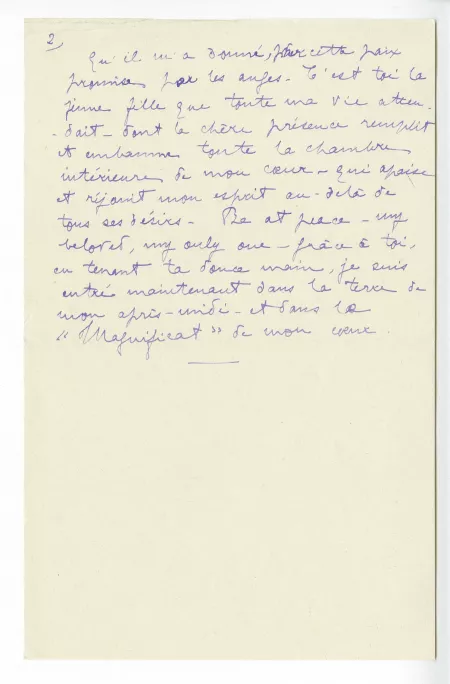 2
Qu'il m'a donné, par cette paix
promise par les anges. C'est toi la
jeune fille que toute ma vie atten-
-dait - dont la chère présence remplit
et embaume toute la chambre
intérieure de mon cœur - qui apaise
et réjouit mon esprit au-delà de
tous ses désirs - Be at peace - my
beloved, my only one - grâce à toi,
en tenant ta douce main, je suis
entré maintenant dans la terre de
mon après-midi - et dans le
"Magnificat" de mon cœur.